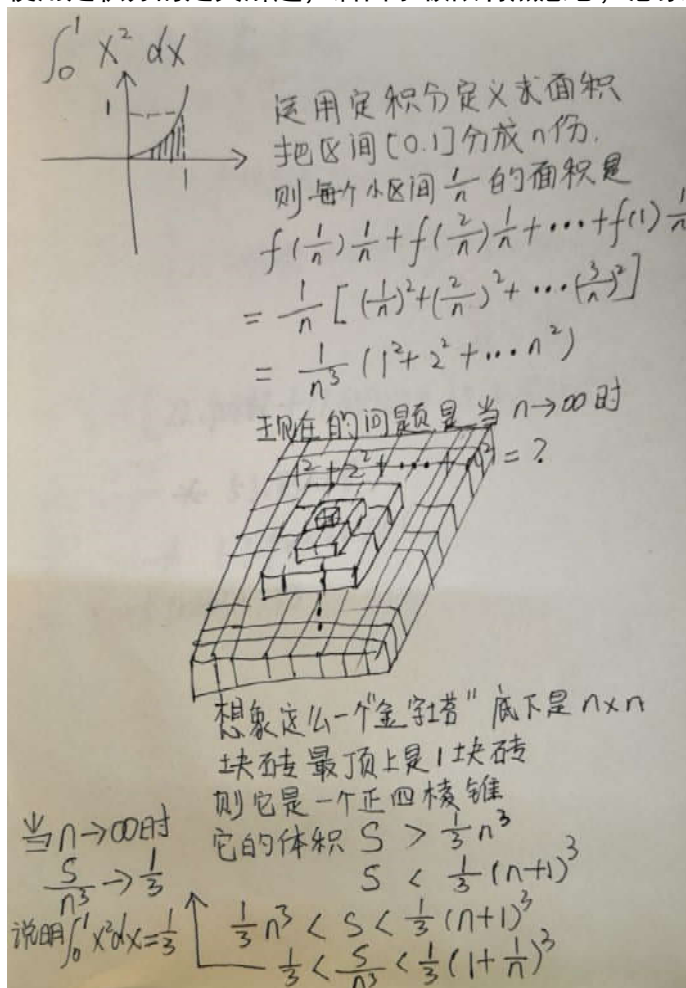 ∫₀¹ x² dx
1
1
运用定积分定义求面积
把区间[0.1]分成n份.
则每个小区间 1/n 的面积是
f(1/n)1/n + f(2/n)1/n + ··· + f(1)1/n
= 1/n [(1/n)² + (2/n)² + ···(3/n)²]
= 1/n³ (1² + 2² + ··· n²)
现在的问题是当 n→∞时
1² + 2² + ··· + n² = ?
想象这么一个"金字塔" 底下是 n×n
块砖 最顶上是1块砖
则它是一个正四棱锥
它的体积 S > 1/3 n³
S < 1/3 (n+1)³
1/3 n³ < S < 1/3 (n+1)³
1/3 < S/n³ < 1/3 (1 + 1/n)³
当n→∞时
S/n³ → 1/3
说明∫₀¹ x²dx = 1/3